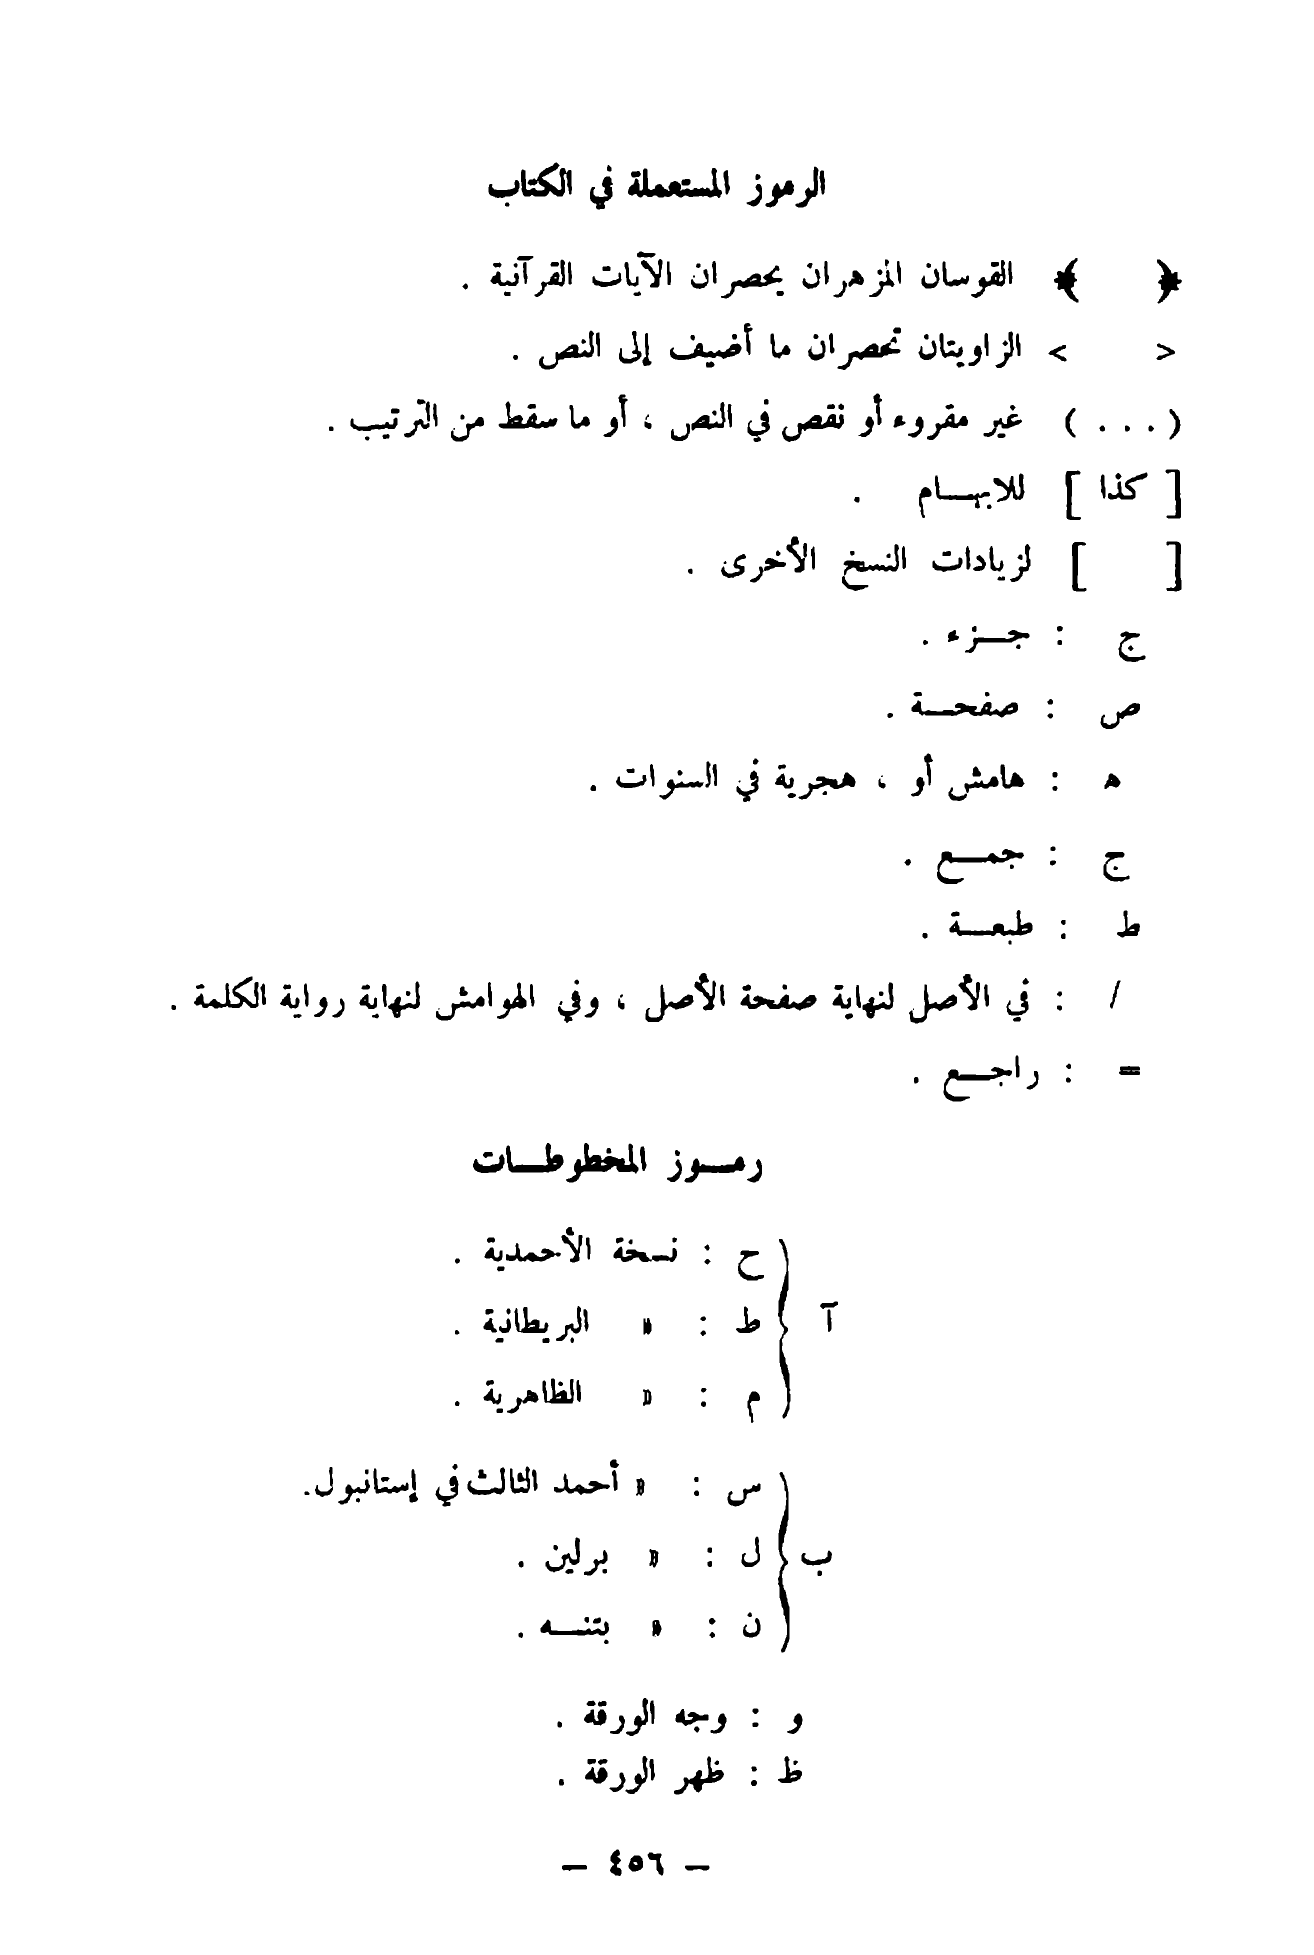 الرموز المستعملة في الكتاب
﴿ ﴾ القوسان المزهران يحصران الآيات القرآنية .
< > الزاويتان تحصران ما أضيف إلى النص .
( . . . ) غير مقروء أو نقص في النص ، أو ما سقط من الترتيب .
[ كذا ] للابهـــام .
[ ] لزيادات النسخ الأخرى .
ج : جـــزء .
ص : صفحـــة .
ه : هامش أو ، هجرية في السنوات .
ج : جمـــع .
ط : طبعـــة .
/ : في الأصل لنهاية صفحة الأصل ، وفي الهوامش لنهاية رواية الكلمة .
= : راجـــع .
رمـــوز المخطوطـــات
ح : نسخة الأحمدية .
آ { ط : » البريطانية .
م : » الظاهرية .
س : » أحمد الثالث في إستانبول.
ب { ل : » برلين .
ن : » بتنـــه .
و : وجه الورقة .
ظ : ظهر الورقة .
— ٤٥٦ —